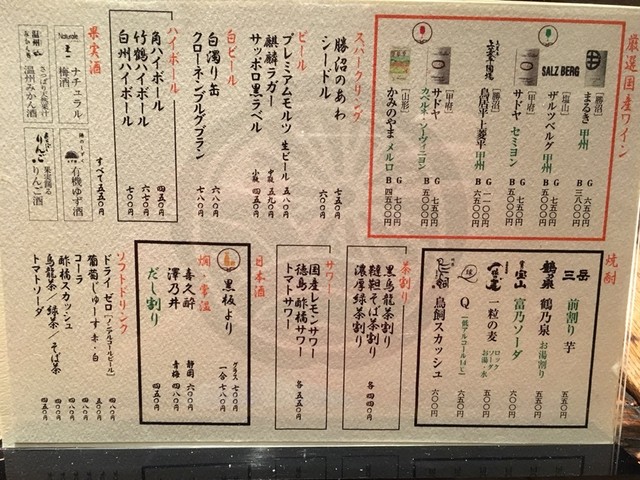 厳選国産ワイン
[勝沼]
まるき 甲州
G 六五〇
B 三八〇〇
SALZ BERG
[塩山]
ザルツベルグ 甲州
G 七五〇
B 五〇〇〇
[甲府]
サドヤ セミヨン
G 七五〇
B 五〇〇〇
[勝沼]
鳥居平上菱平 甲州
G 一一〇〇
B 六五〇〇
[甲府]
サドヤ
カベルネソーヴィニヨン
G 七五〇
B 五〇〇〇
[山形]
かみのやま メルロ
G 七〇〇
B 四五〇〇
スパークリング
勝沼のあわ 七五〇
シードル 六〇〇
ビール
プレミアムモルツ 生ビール 五八〇
麒麟ラガー 中瓶 五九〇
サッポロ黒ラベル 小瓶 四五〇
白ビール
白濁り缶 六八〇
クローネンブルグブラン 七八〇
ハイボール
角ハイボール 四五〇
竹鶴ハイボール 六七〇
白州ハイボール 七八〇
果実酒
Naturale
ナチュラル
梅酒
有機ゆず酒
温州
さっぱり天然果汁
温州みかん酒
りんご
果実踊る
りんご酒
すべて 五五〇
焼酎
三岳
前割り 芋 五五〇
鶴乃泉
鶴乃泉 お湯割り 五五〇
宝山
富乃ソーダ 六五〇
一粒の麦
ロック
ソーダ
お湯・水
五〇〇
Q(低アルコール日本酒) 六五〇
鳥飼
鳥飼スカッシュ 六〇〇
茶割り
黒烏龍茶割り
韃靼そば茶割り
濃厚緑茶割り
各 四四〇
サワー
国産レモンサワー
徳島 酢橘サワー
トマトサワー
各 五五〇
日本酒
黒板より
グラス 七〇〇
一合 七八〇
燗 常温
喜久酔 静岡 六〇〇
澤乃井 青梅 四八〇
だし割り 四五〇
ソフトドリンク
ドライ ゼロ(ノンアルコールビール) 四八〇
葡萄じゅーす 赤・白 五〇〇
コーラ 四八〇
酢橘スカッシュ 四八〇
烏龍茶/緑茶/そば茶 四五〇
トマトソーダ 四五〇